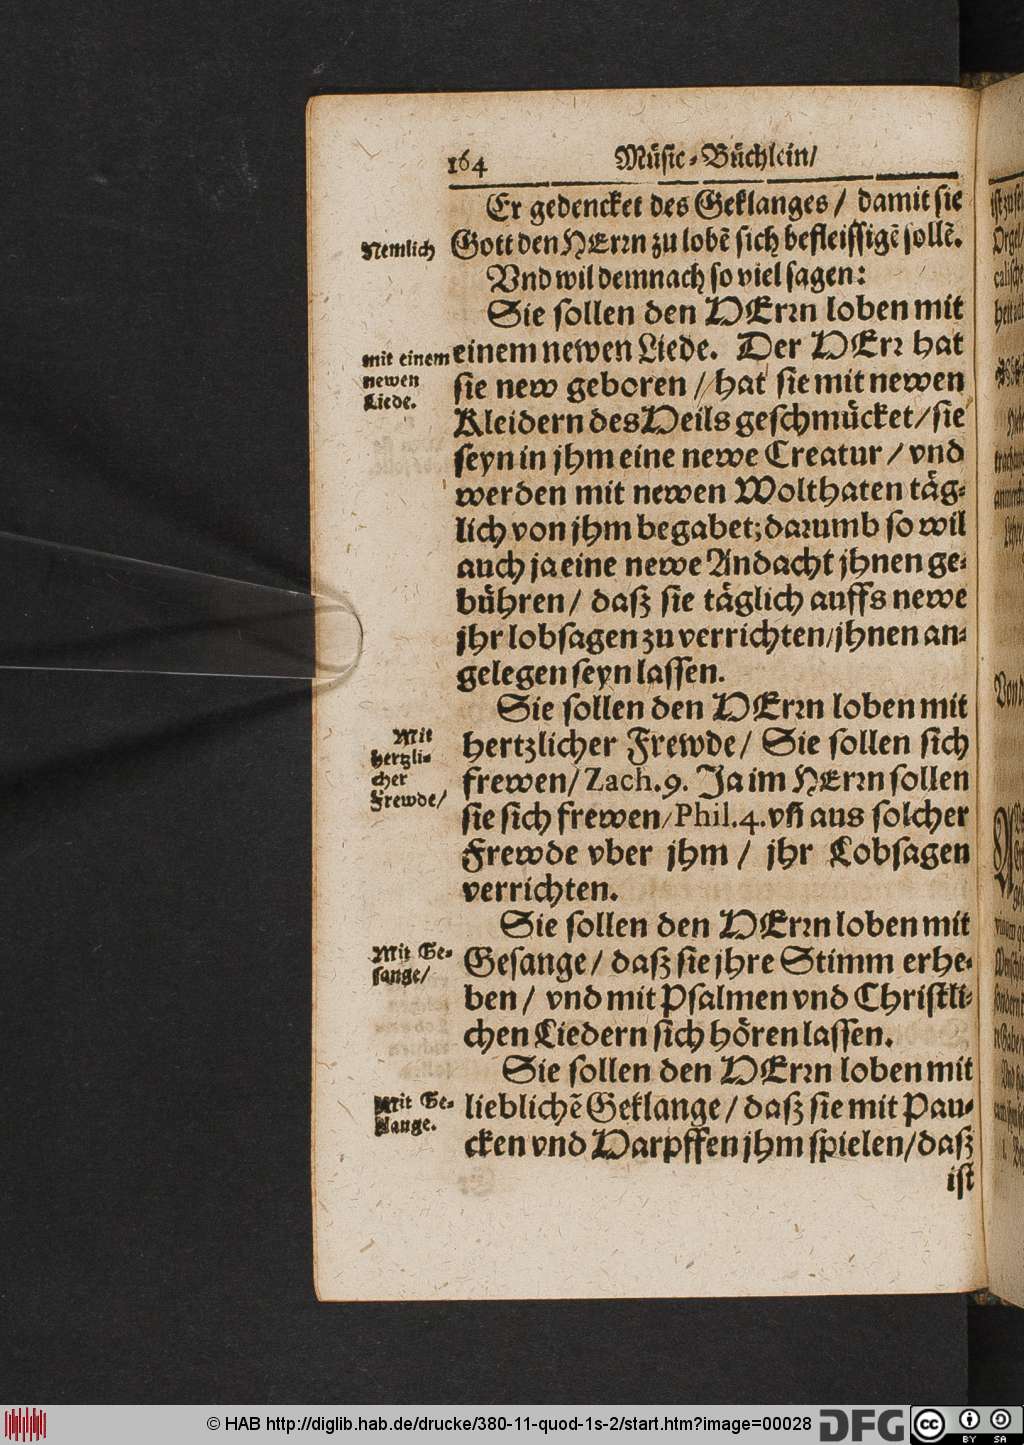 164 Müsic-Büchlein/
Er gedencket des Geklanges / damit sie
Nemlich
Gott den HErrn zu lobẽ sich befleissigẽ sollẽ.
Vnd wil demnach so viel sagen:
Sie sollen den HErrn loben mit
mit einem
newen
Liede.
einem newen Liede. Der HErr hat
sie new geboren / hat sie mit newen
Kleidern des Heils geschmücket / sie
seyn in jhm eine newe Creatur / vnd
werden mit newen Wolthaten täg-
lich von jhm begabet; darumb so wil
auch ja eine newe Andacht jhnen ge-
bühren / daß sie täglich auffs newe
jhr lobsagen zu verrichten / jhnen an-
gelegen seyn lassen.
Sie sollen den HErrn loben mit
Mit
hertzli-
cher
Frewde/
hertzlicher Frewde / Sie sollen sich
frewen / Zach. 9. Ja im HErrn sollen
sie sich frewen / Phil. 4. vñ aus solcher
Frewde vber jhm / jhr Lobsagen
verrichten.
Sie sollen den HErrn loben mit
Mit Ge-
sange/
Gesange / daß sie jhre Stimm erhe-
ben / vnd mit Psalmen vnd Christli-
chen Liedern sich hören lassen.
Sie sollen den HErrn loben mit
Mit Ge-
klange.
lieblichẽ Geklange / daß sie mit Pau-
cken vnd Harpffen jhm spielen / daß
ist
© HAB http://diglib.hab.de/drucke/380-11-quod-1s-2/start.htm?image=00028
DFG
cc
BY SA